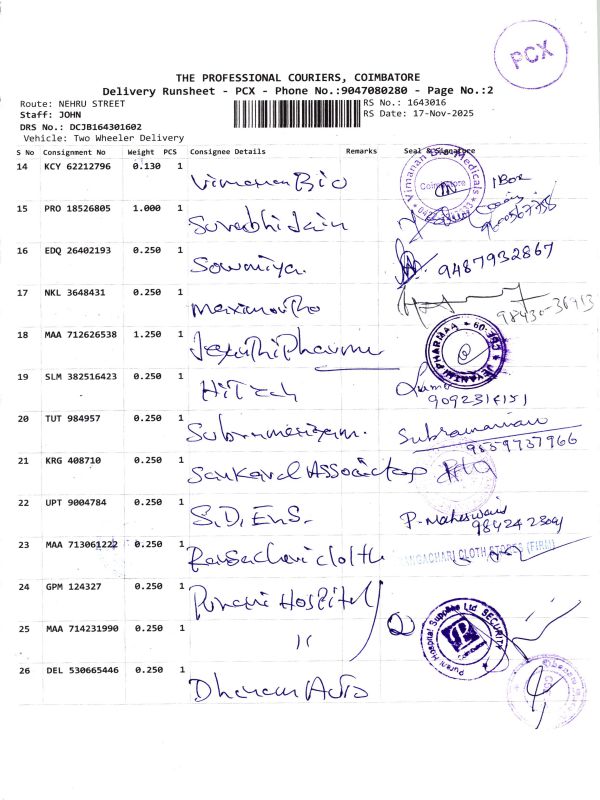 PCX
THE PROFESSIONAL COURIERS, COIMBATORE
Delivery Runsheet - PCX - Phone No.:9047080280 - Page No.:2
Route: NEHRU STREET RS No.: 1643016
Staff: JOHN RS Date: 17-Nov-2025
DRS No.: DCJB164301602
Vehicle: Two Wheeler Delivery
S No Consignment No Weight PCS Consignee Details Remarks Seal & Signature
14 KCY 62212796 0.130 1 Vimanan Bio Vimanan Medicals Coimbatore 1 Box
15 PRO 18526805 1.000 1 Surabhi Jain
16 EDQ 26402193 0.250 1 Sowmiya. 9487932867
17 NKL 3648431 0.250 1
18 MAA 712626538 1.250 1 Jayanthi Pharma JEYANTHI PHARMAA CBE-09
19 SLM 382516423 0.250 1 HiTech
20 TUT 984957 0.250 1 Subramaniam
21 KRG 408710 0.250 1 Sankaral Associates
22 UPT 9004784 0.250 1 S.D. Ens. P. Maheswari
23 MAA 713061222 0.250 1 cloth RANGACHARI CLOTH STORES (FIRM)
24 GPM 124327 0.250 1 Purani Hospital
25 MAA 714231990 0.250 1 11 Purani Hospital Supplies Ltd SECURITY
26 DEL 530665446 0.250 1 Auto